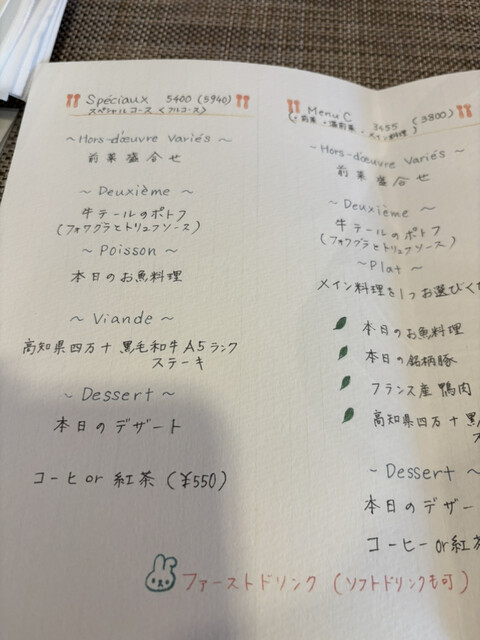 Spéciaux 5400 (5940)
スペシャルコース <フルコース>
~Hors-d'œuvre Variés ~
前菜盛合せ
~ Deuxième ~
牛テールのポトフ
(フォワグラとトリュフソース)
~ Poisson ~
本日のお魚料理
~ Viande ~
高知県四万十黒毛和牛A5ランク
ステーキ
~ Dessert ~
本日のデザート
コーヒ or 紅茶 (¥550)
Menu C 3455 (3800)
~Hors-d'œuvre Variés ~
前菜盛合せ
~ Deuxième ~
牛テールのポトフ
(フォワグラとトリュフソース)
~ Plat ~
メイン料理を1つお選びく
本日のお魚料理
本日の銘柄豚
フランス産 鴨肉
高知県四万十黒
~ Dessert ~
本日のデザー
コーヒー or 紅茶
ファーストドリンク (ソフトドリンクも可)